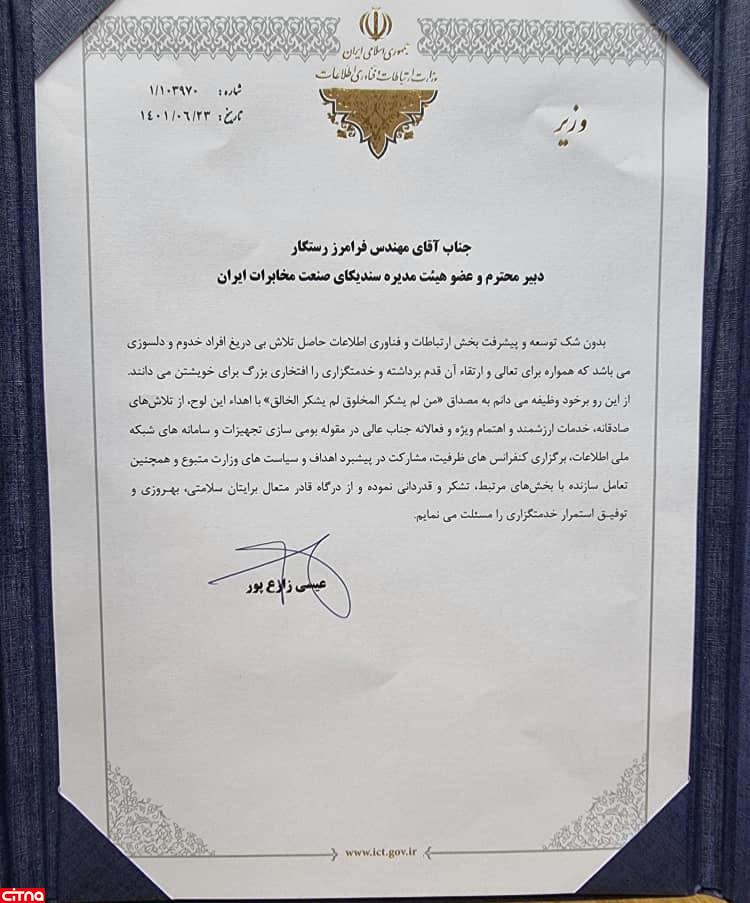 جمهوری اسلامی ایران
وزارت ارتباطات و فناوری اطلاعات
شماره: ۱/۱۰۳۹۷۰
تاریخ: ۱۴۰۱/۰۶/۲۳
وزیر
جناب آقای مهندس فرامرز رستگار
دبیر محترم و عضو هیئت مدیره سندیکای صنعت مخابرات ایران
بدون شک توسعه و پیشرفت بخش ارتباطات و فناوری اطلاعات حاصل تلاش بی دریغ افراد خدوم و دلسوزی
می باشد که همواره برای تعالی و ارتقاء آن قدم برداشته و خدمتگزاری را افتخاری بزرگ برای خویشتن می دانند.
از این رو برخود وظیفه می دانم به مصداق «من لم یشکر المخلوق لم یشکر الخالق» با اهداء این لوح، از تلاش‌های
صادقانه، خدمات ارزشمند و اهتمام ویژه و فعالانه جناب عالی در مقوله بومی سازی تجهیزات و سامانه های شبکه
ملی اطلاعات، برگزاری کنفرانس های ظرفیت، مشارکت در پیشبرد اهداف و سیاست های وزارت متبوع و همچنین
تعامل سازنده با بخش‌های مرتبط، تشکر و قدردانی نموده و از درگاه قادر متعال برایتان سلامتی، بهروزی و
توفیق استمرار خدمتگزاری را مسئلت می نمایم.
عیسی زارع پور
www.ict.gov.ir
CITNA